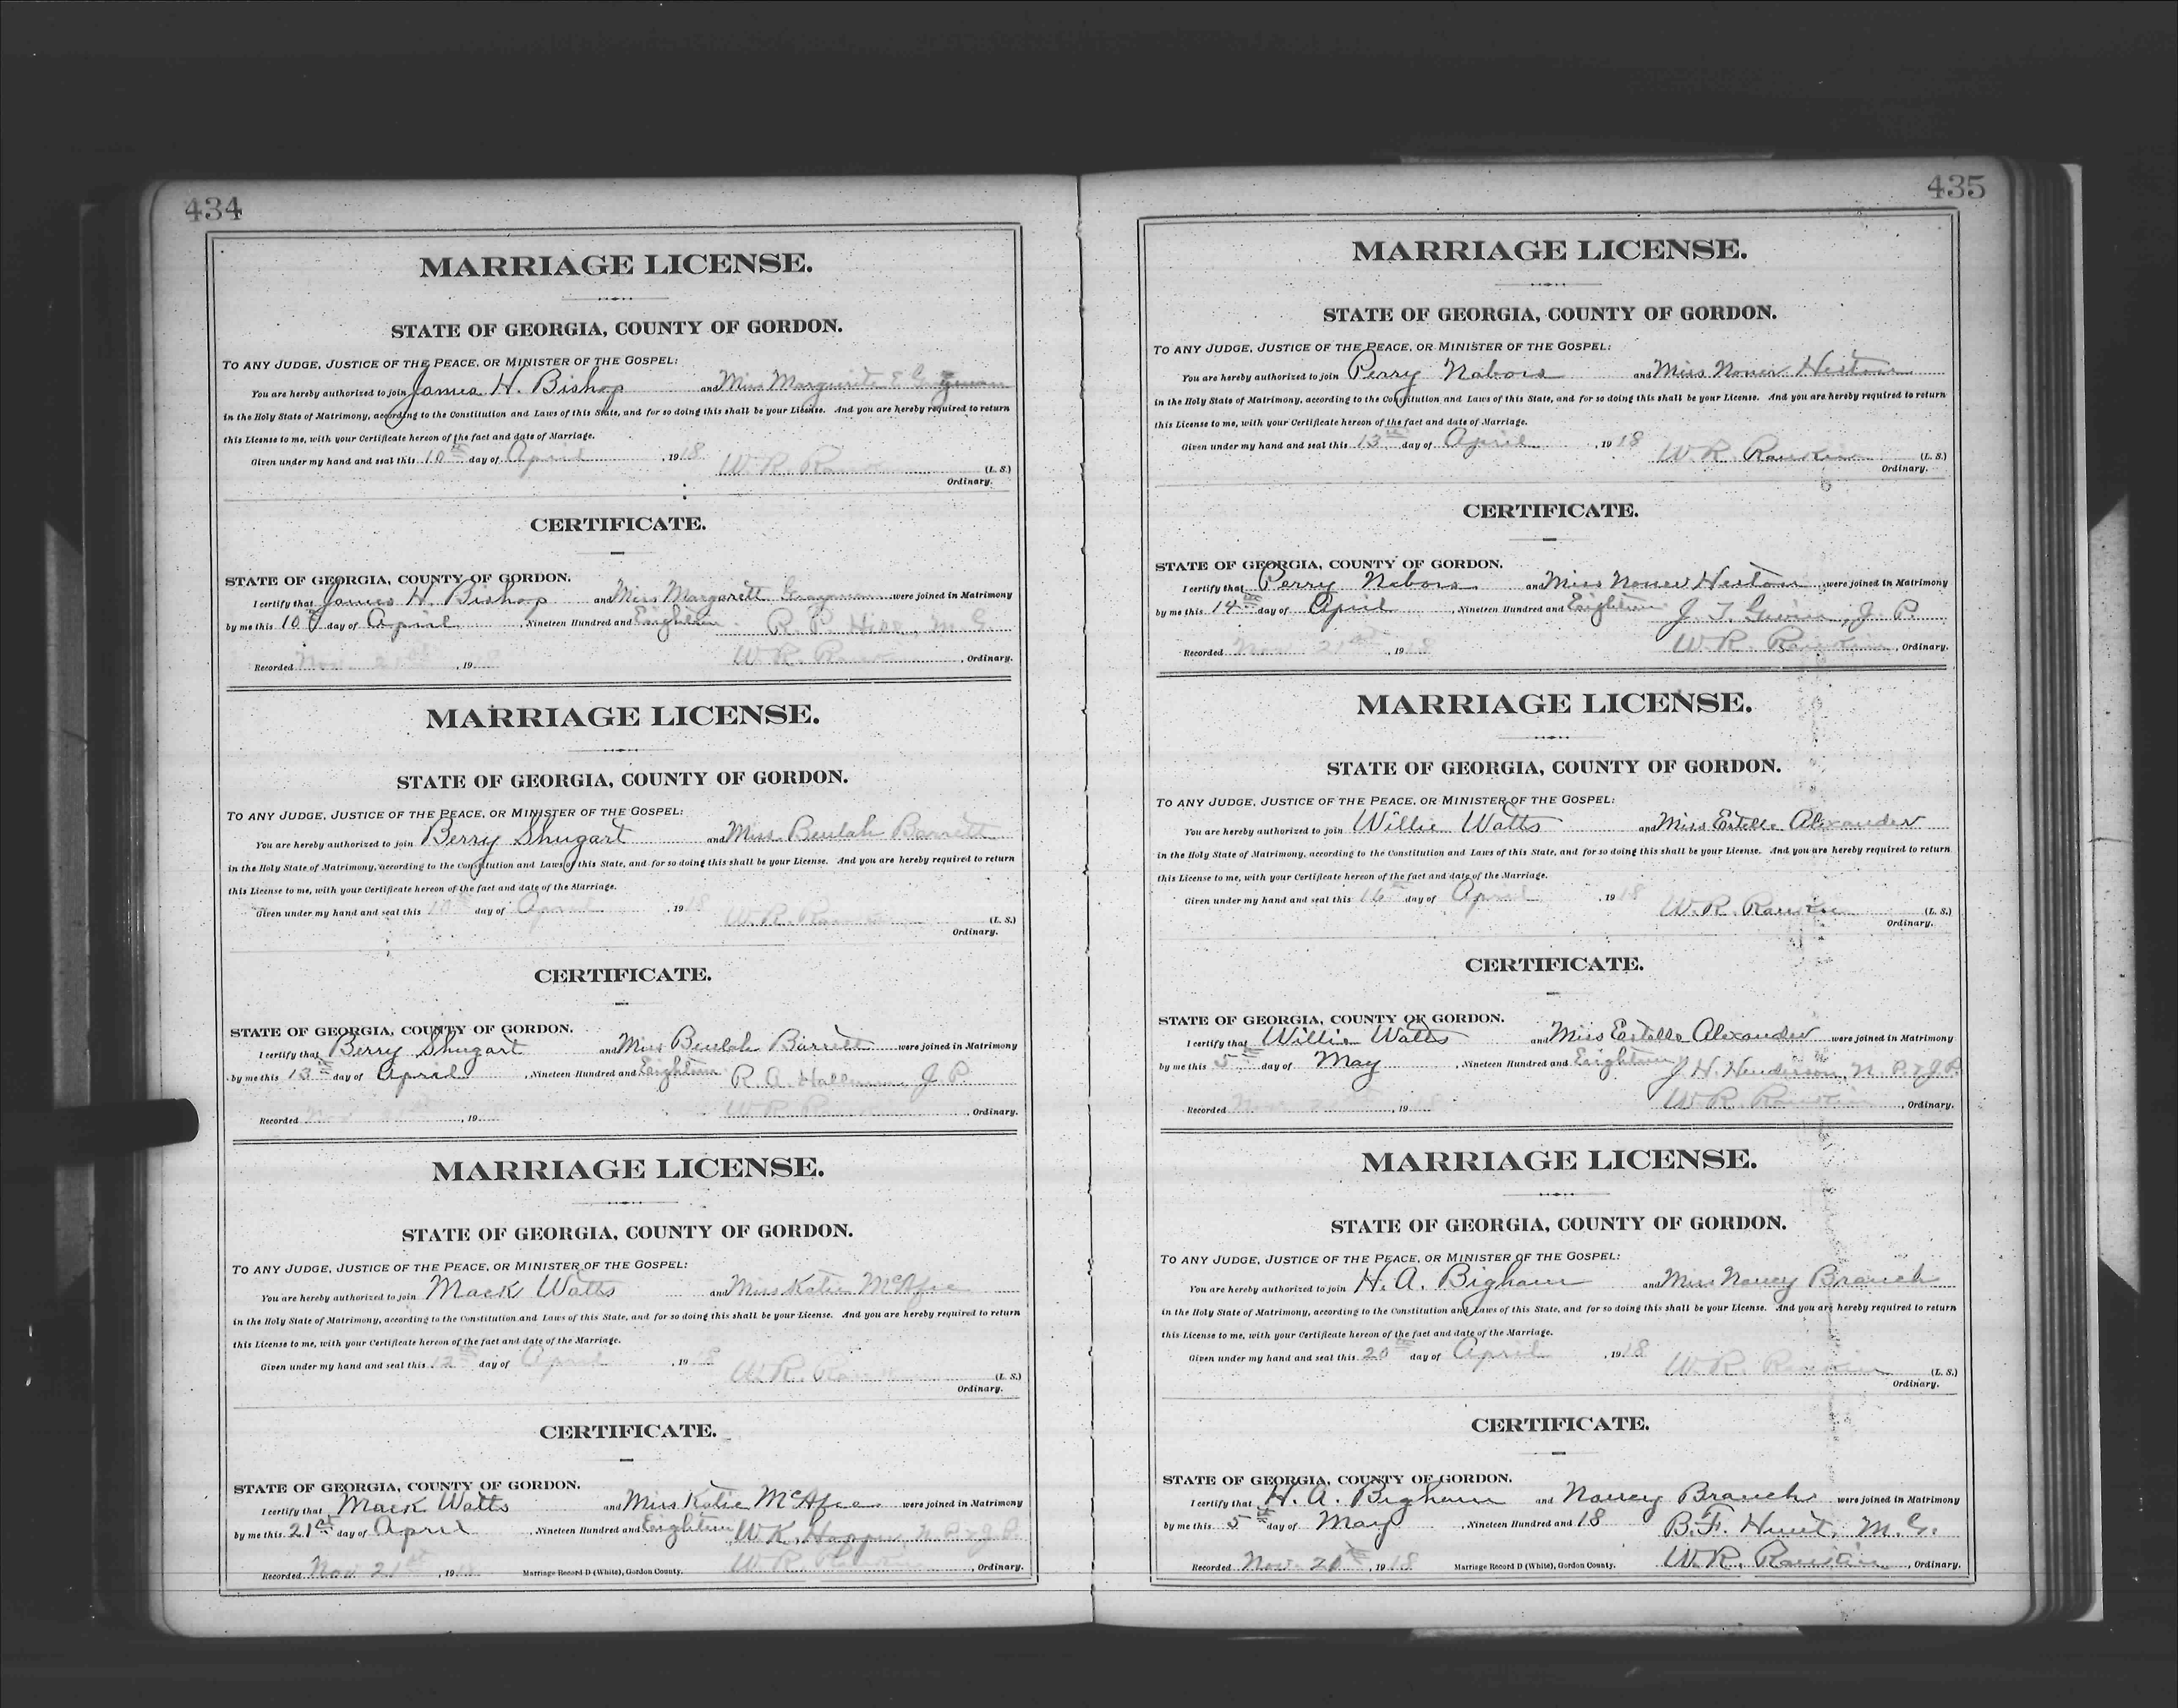 434
MARRIAGE LICENSE.
STATE OF GEORGIA, COUNTY OF GORDON.
TO ANY JUDGE, JUSTICE OF THE PEACE, OR MINISTER OF THE GOSPEL:
You are hereby authorized to join James H. Bishop and Miss Margurite E
in the Holy State of Matrimony, according to the Constitution and Laws of this State, and for so doing this shall be your License. And you are hereby required to return
this License to me, with your Certificate hereon of the fact and date of Marriage.
Given under my hand and seal this 10th day of April, 1918 W. R. (L. S.)
Ordinary.
CERTIFICATE.
STATE OF GEORGIA, COUNTY OF GORDON.
I certify that James H. Bishop and Miss Margarett were joined in Matrimony
by me this 10 day of April, Nineteen Hundred and Eighteen. R. P. M. G.
Recorded Nov. 21st, 1918 W. R., Ordinary.
MARRIAGE LICENSE.
STATE OF GEORGIA, COUNTY OF GORDON.
TO ANY JUDGE, JUSTICE OF THE PEACE, OR MINISTER OF THE GOSPEL:
You are hereby authorized to join Berry Shugart and Miss Beulah Barrett
in the Holy State of Matrimony, according to the Constitution and Laws of this State, and for so doing this shall be your License. And you are hereby required to return
this License to me, with your Certificate hereon of the fact and date of the Marriage.
Given under my hand and seal this day of April, 1918 W. R. (L. S.)
Ordinary.
CERTIFICATE.
STATE OF GEORGIA, COUNTY OF GORDON.
I certify that Berry Shugart and Miss Beulah Barrett were joined in Matrimony
by me this 13th day of April, Nineteen Hundred and Eighteen R. A. J. P.
Recorded Nov 21st, 19 W. R., Ordinary.
MARRIAGE LICENSE.
STATE OF GEORGIA, COUNTY OF GORDON.
TO ANY JUDGE, JUSTICE OF THE PEACE, OR MINISTER OF THE GOSPEL:
You are hereby authorized to join Mack Watts and Miss Katie McAfee
in the Holy State of Matrimony, according to the Constitution and Laws of this State, and for so doing this shall be your License. And you are hereby required to return
this License to me, with your Certificate hereon of the fact and date of the Marriage.
Given under my hand and seal this 12th day of April, 1918 W. R. (L. S.)
Ordinary.
CERTIFICATE.
STATE OF GEORGIA, COUNTY OF GORDON.
I certify that Mack Watts and Miss Katie McAfee were joined in Matrimony
by me this 21st day of April, Nineteen Hundred and Eighteen W. K. N. P. & J. P.
Recorded Nov 21st, 19 W. R. Rankin, Ordinary.
Marriage Record D (White), Gordon County.
435
MARRIAGE LICENSE.
STATE OF GEORGIA, COUNTY OF GORDON.
TO ANY JUDGE, JUSTICE OF THE PEACE, OR MINISTER OF THE GOSPEL:
You are hereby authorized to join Perry Nabors and Miss
in the Holy State of Matrimony, according to the Constitution and Laws of this State, and for so doing this shall be your License. And you are hereby required to return
this License to me, with your Certificate hereon of the fact and date of Marriage.
Given under my hand and seal this 13th day of April, 1918 W. R. Rankin (L. S.)
Ordinary.
CERTIFICATE.
STATE OF GEORGIA, COUNTY OF GORDON.
I certify that Perry Nabors and Miss were joined in Matrimony
by me this 14th day of April, Nineteen Hundred and Eighteen J. T. J. P.
Recorded Nov 21st, 1918 W. R. Rankin, Ordinary.
MARRIAGE LICENSE.
STATE OF GEORGIA, COUNTY OF GORDON.
TO ANY JUDGE, JUSTICE OF THE PEACE, OR MINISTER OF THE GOSPEL:
You are hereby authorized to join Willie Watts and Miss Estelle Alexander
in the Holy State of Matrimony, according to the Constitution and Laws of this State, and for so doing this shall be your License. And you are hereby required to return
this License to me, with your Certificate hereon of the fact and date of the Marriage.
Given under my hand and seal this 16th day of April, 1918 W. R. Rankin (L. S.)
Ordinary.
CERTIFICATE.
STATE OF GEORGIA, COUNTY OF GORDON.
I certify that Willie Watts and Miss Estelle Alexander were joined in Matrimony
by me this 5th day of May, Nineteen Hundred and Eighteen J. H. Henderson, N. P. & J. P.
Recorded Nov, 1918 W. R. Rankin, Ordinary.
MARRIAGE LICENSE.
STATE OF GEORGIA, COUNTY OF GORDON.
TO ANY JUDGE, JUSTICE OF THE PEACE, OR MINISTER OF THE GOSPEL:
You are hereby authorized to join H. A. Bigham and Miss Nancy Branch
in the Holy State of Matrimony, according to the Constitution and Laws of this State, and for so doing this shall be your License. And you are hereby required to return
this License to me, with your Certificate hereon of the fact and date of the Marriage.
Given under my hand and seal this 20th day of April, 1918 W. R. Rankin (L. S.)
Ordinary.
CERTIFICATE.
STATE OF GEORGIA, COUNTY OF GORDON.
I certify that H. A. Bigham and Nancy Branch were joined in Matrimony
by me this 5th day of May, Nineteen Hundred and 18 B. F. Hunt, M. G.
Recorded Nov., 1918 Marriage Record D (White), Gordon County. W. R. Rankin, Ordinary.